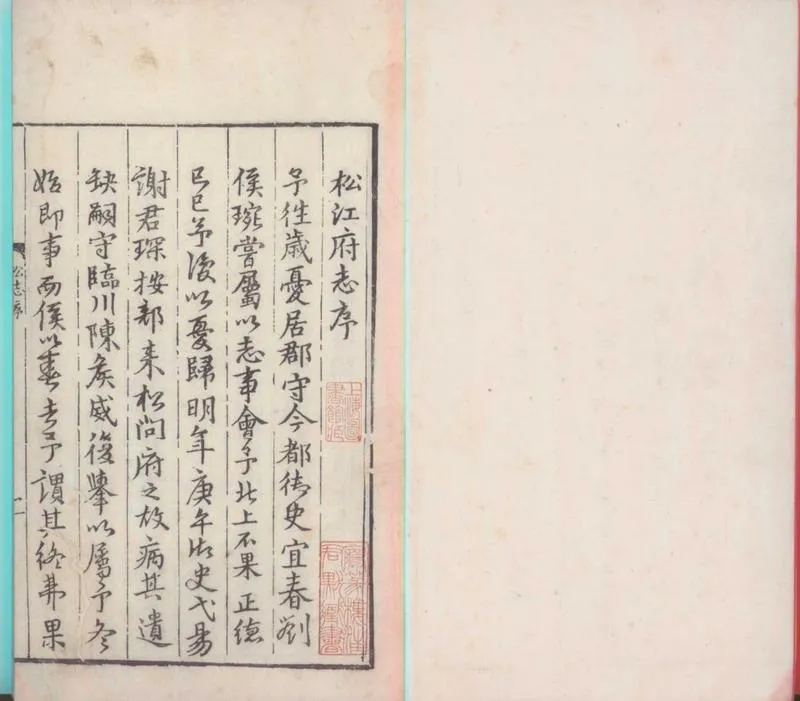 松江府志序
予往歲憂居郡守今都御史宜春劉
侯琬嘗屬以志事會予北上不果正德
己巳予後以憂歸明年庚午御史弋昜
謝君琛按部来松问府之故病其遺
缺嗣守臨川陳矦威復擧以屬予冬
始即事而侯以去予謂其終弗果
松志序
一
上海圖
書館藏